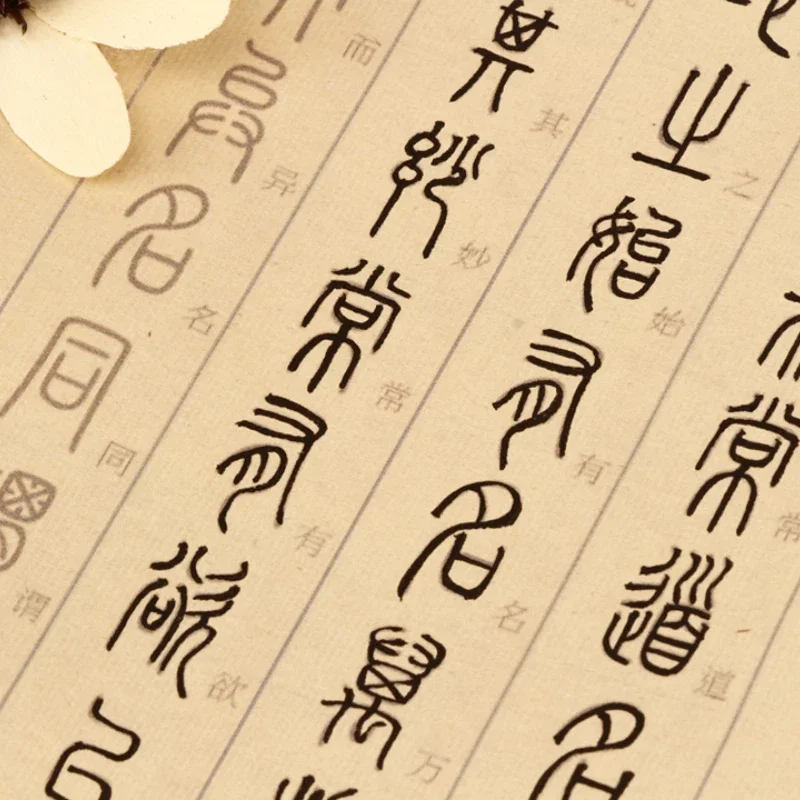 常道名
常道
之始有名萬
之始有名万
其妙常有欲以
其妙常有欲
異名同謂
而异名同谓